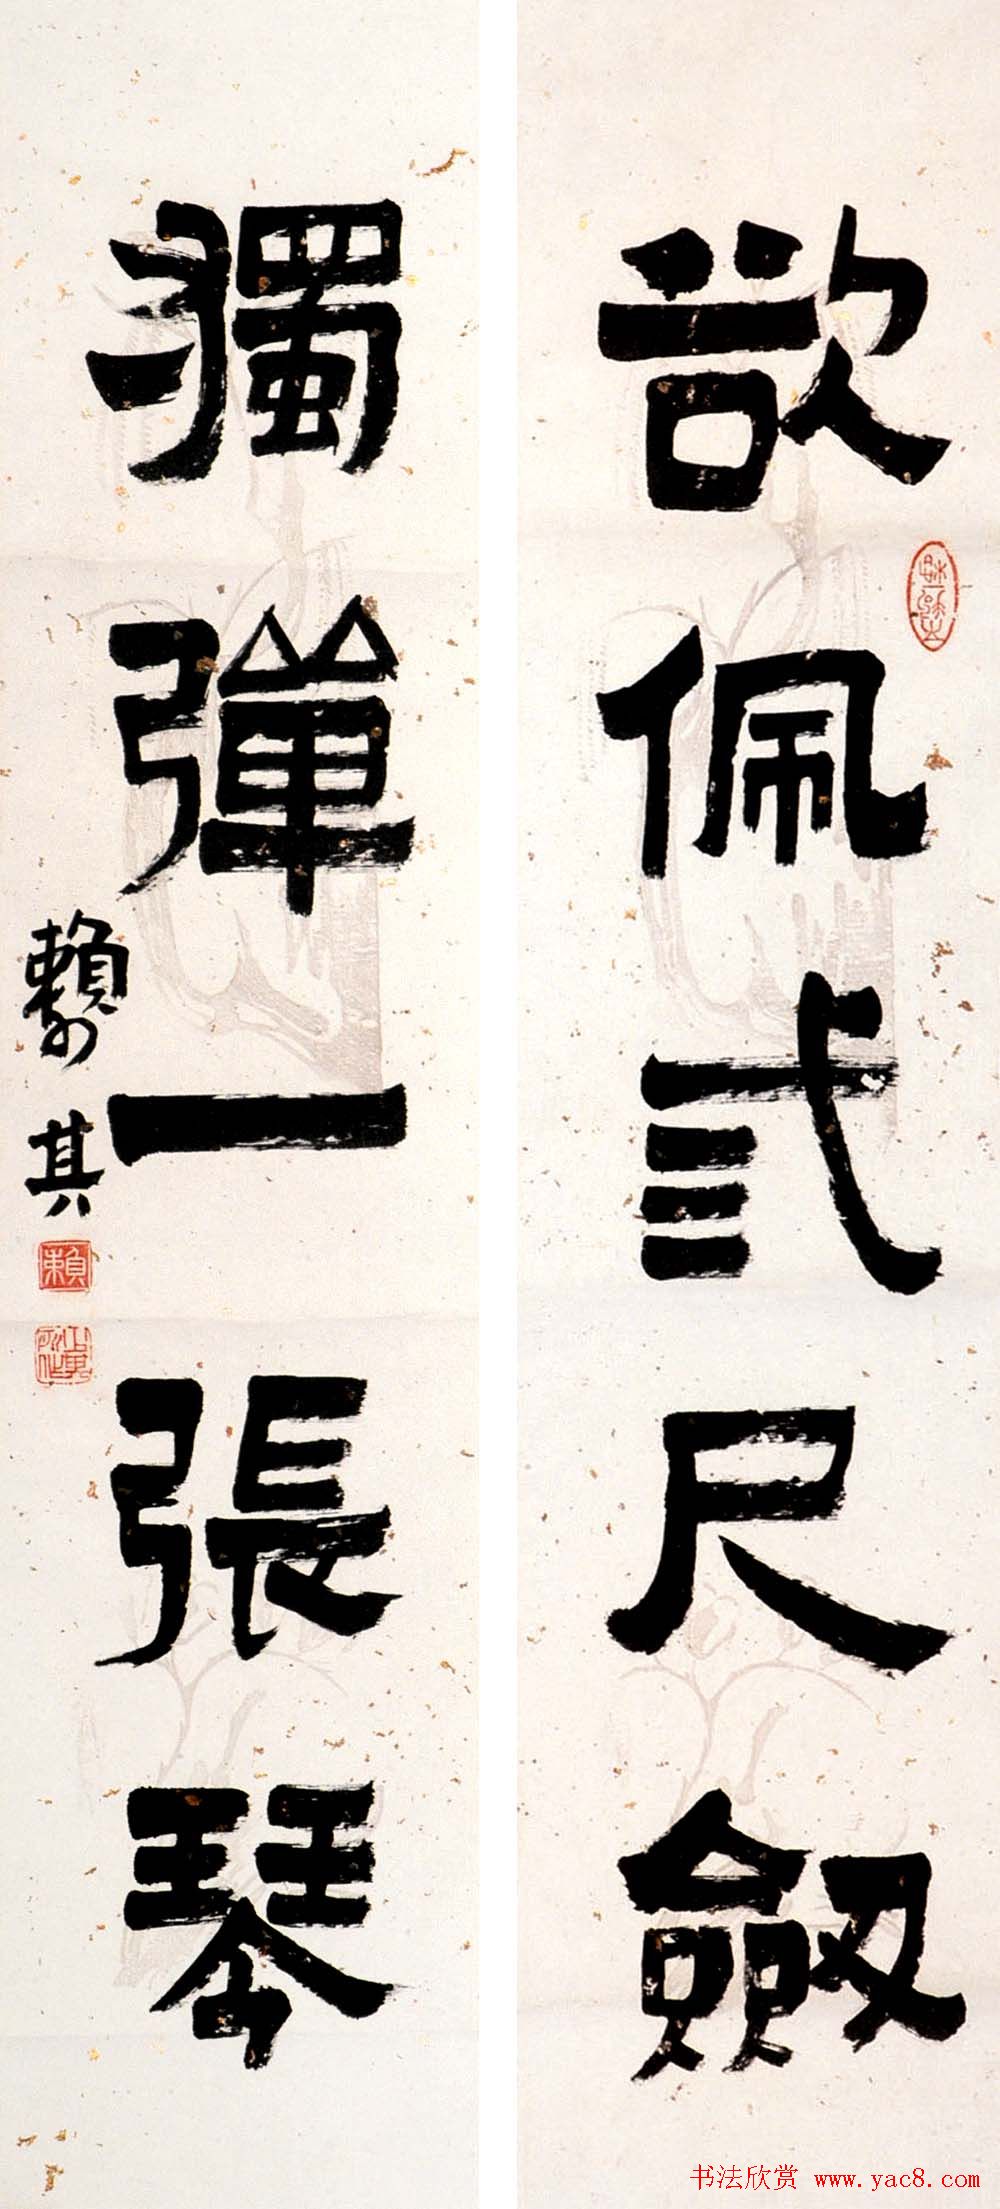 欲佩弎尺劔
獨彈一張琴
賴少其
賴
书法欣赏 www.yac8.com